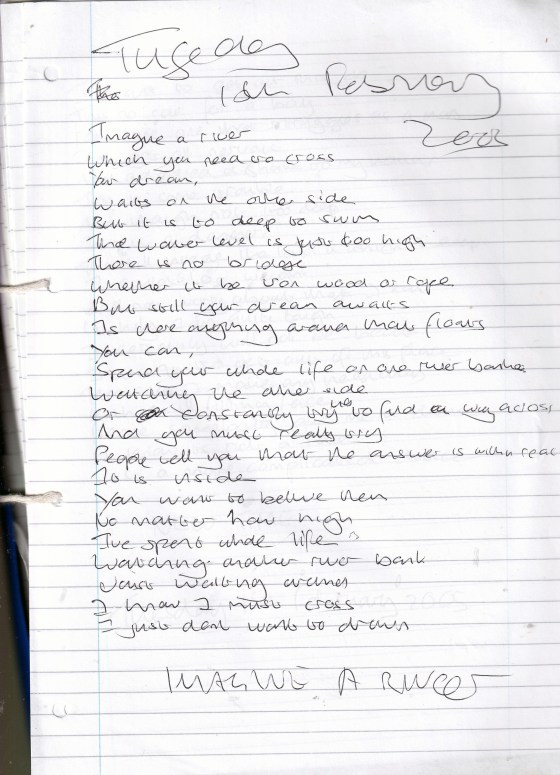 Tuseday
February
Imague a river
which you need to cross
Your dream,
waits on the other side
But it is to deep to swim
The water level is just too high
There is no bridge
whether it be iron wood or rope
But still your dream awaits
Is there anything around that floats
You can,
Spend your whole life on one river bank
watching the other side
Or constantly trying to find a way across
And you must really try
People tell you that the answer is within reac
It is inside
You want to belive them
No matter how high
I've spent whole life
Watching another river bank
walking around
I know I must cross
I just dont want to drown
IMAGINE A RIVER